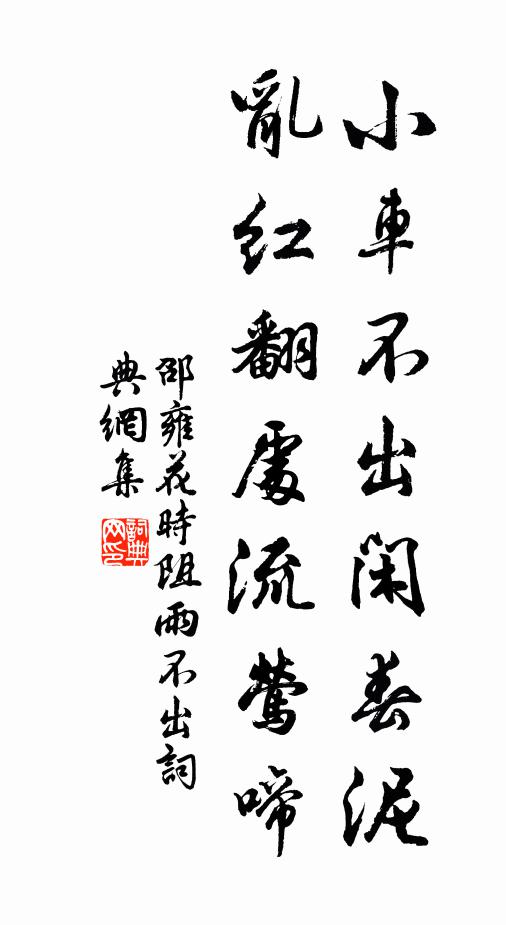 小車不出閑春泥
亂紅翻處流鶯啼
邵雍花時阻雨不出詞
典網集
詞典網印